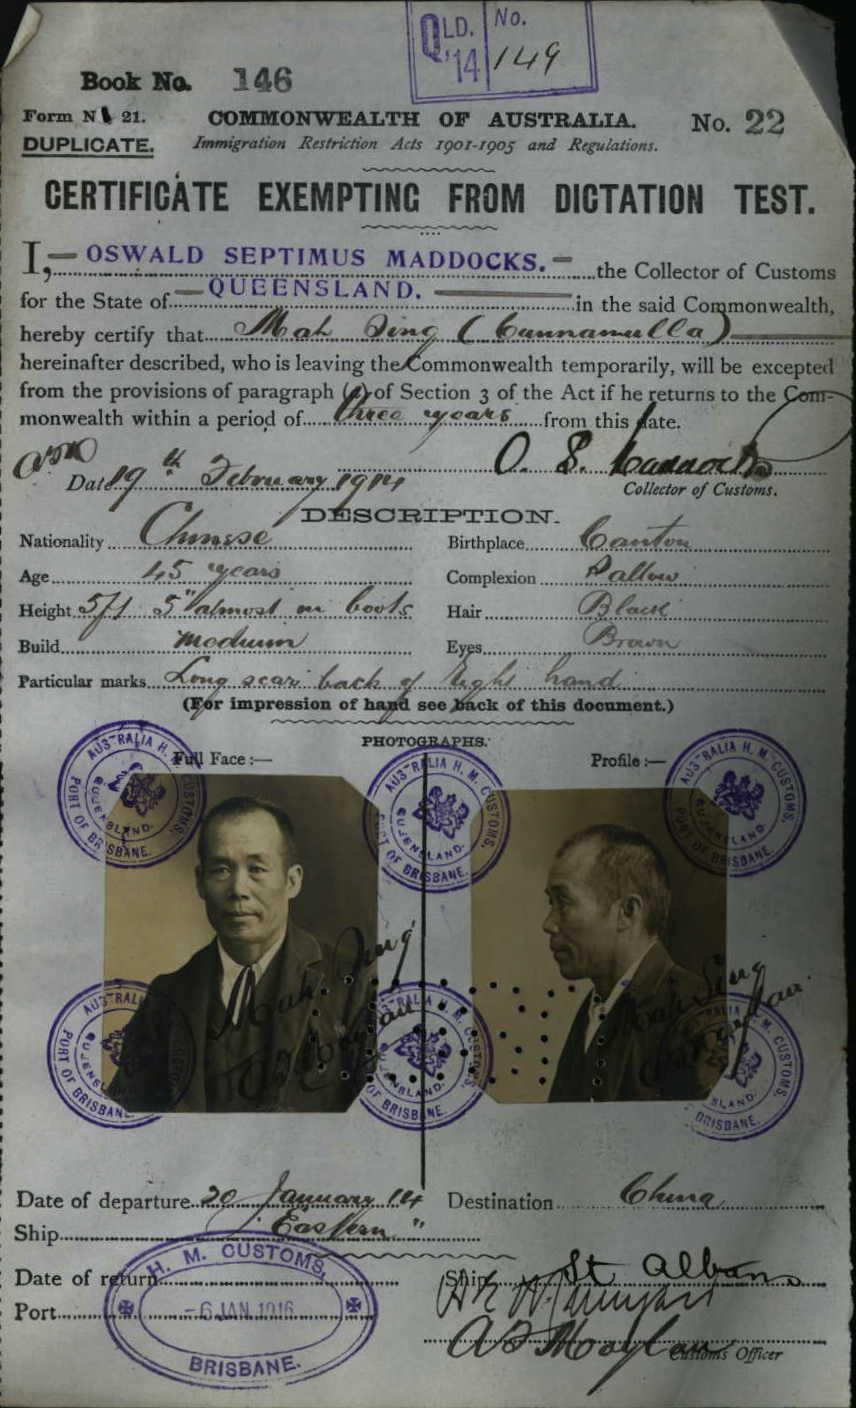 QLD. No.
'14 149
Book No. 146
Form No 21. COMMONWEALTH OF AUSTRALIA. No. 22
DUPLICATE. Immigration Restriction Acts 1901-1905 and Regulations.
CERTIFICATE EXEMPTING FROM DICTATION TEST.
I, OSWALD SEPTIMUS MADDOCKS. the Collector of Customs
for the State of QUEENSLAND. in the said Commonwealth,
hereby certify that Mah Jing (Cunnamulla)
hereinafter described, who is leaving the Commonwealth temporarily, will be excepted
from the provisions of paragraph (a) of Section 3 of the Act if he returns to the Com-
monwealth within a period of three years from this date.
O. S. Maddocks
Date 19th February 1914
Collector of Customs.
DESCRIPTION.
Nationality Chinese Birthplace Canton
Age 45 years Complexion Sallow
Height 5ft 5" almost in boots Hair Black
Build medium Eyes Brown
Particular marks Long scar back of right hand
(For impression of hand see back of this document.)
PHOTOGRAPHS.
Full Face :— Profile :—
AUSTRALIA H. M. CUSTOMS, PORT OF BRISBANE. QUEENSLAND.
AUSTRALIA H. M. CUSTOMS, PORT OF BRISBANE. QUEENSLAND.
AUSTRALIA H. M. CUSTOMS, PORT OF BRISBANE. QUEENSLAND.
Mah Jing
Mah Jing
AUSTRALIA PORT OF BRISBANE. QUEENSLAND.
AUSTRALIA H. M. CUSTOMS, OF BRISBANE. QUEENSLAND.
H. M. CUSTOMS, BRISBANE.
Date of departure 20 January 14 Destination China
Ship "Eastern"
Date of return Ship St Albans
Port
H. M. CUSTOMS,
-6 JAN 1916
BRISBANE.
Customs Officer